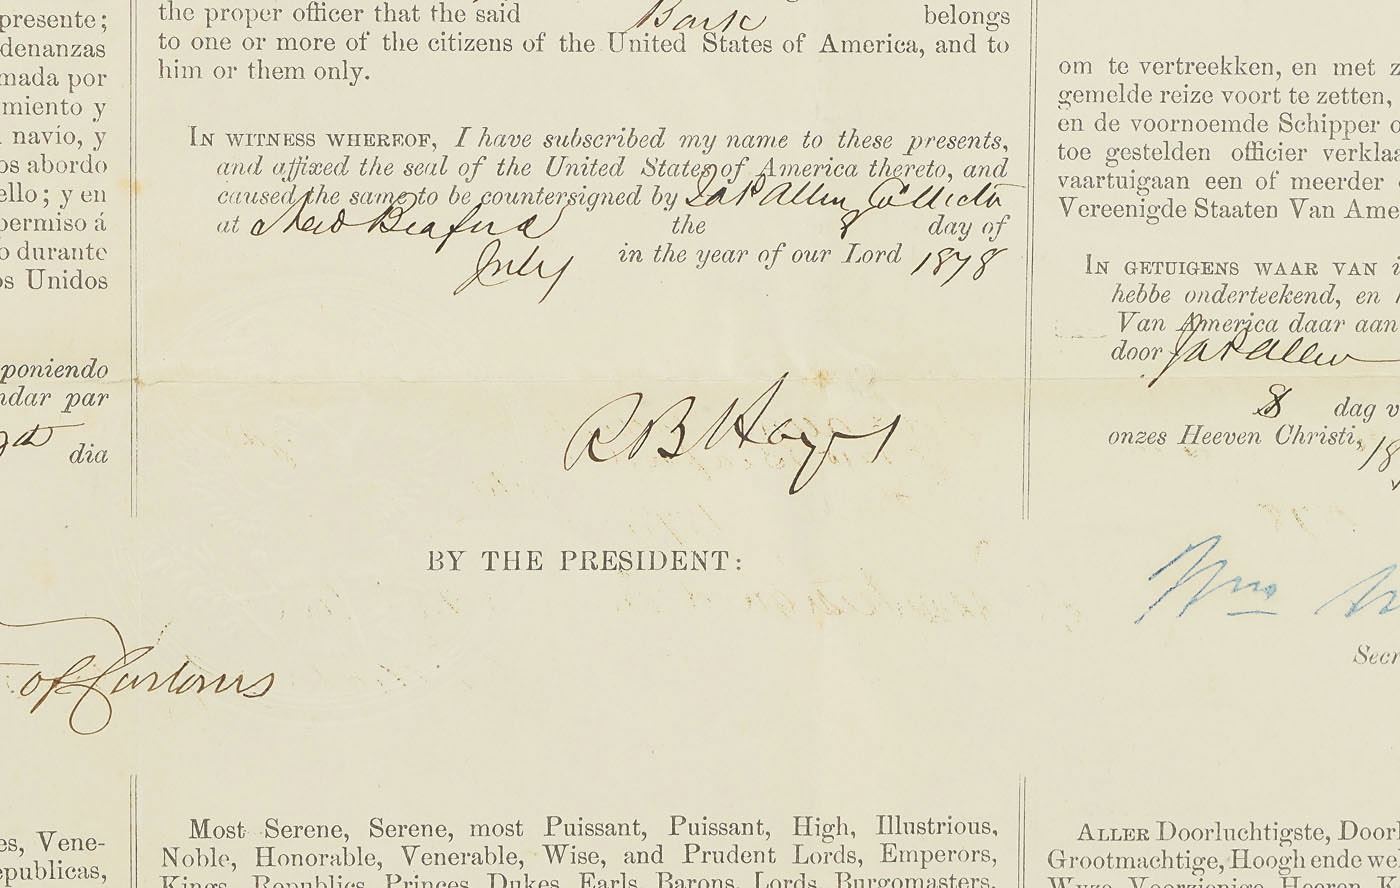 presente;
denanzas
mada por
miento y
navío, y
os abordo
ello; y en
permiso á
o durante
os Unidos
poniendo
ndar par
dia
the proper officer that the said Bark belongs
to one or more of the citizens of the United States of America, and to
him or them only.
IN WITNESS WHEREOF, I have subscribed my name to these presents,
and affixed the seal of the United States of America thereto, and
caused the same to be countersigned by Jas P Allen Collector
at New Bedford the 8 day of
July in the year of our Lord 1878
R B Hayes
BY THE PRESIDENT:
of Customs
om te vertreekken, en met z
gemelde reize voort te zetten,
en de voornoemde Schipper o
toe gestelden officier verklaa
vaartuigaan een of meerder
Vereenigde Staaten Van Ame
IN GETUIGENS WAAR VAN i
hebbe onderteekend, en
Van America daar aan
door Jas P Allen
8 dag v
onzes Heeven Christi, 18
Wm
Secr
es, Vene-
epublicas,
Most Serene, Serene, most Puissant, Puissant, High, Illustrious,
Noble, Honorable, Venerable, Wise, and Prudent Lords, Emperors,
Kings, Republics, Princes, Dukes, Earls, Barons, Lords, Burgomasters,
ALLER Doorluchtigste, Doorl
Grootmachtige, Hoogh ende we
Wyze, Voorzienige, Heeren, K